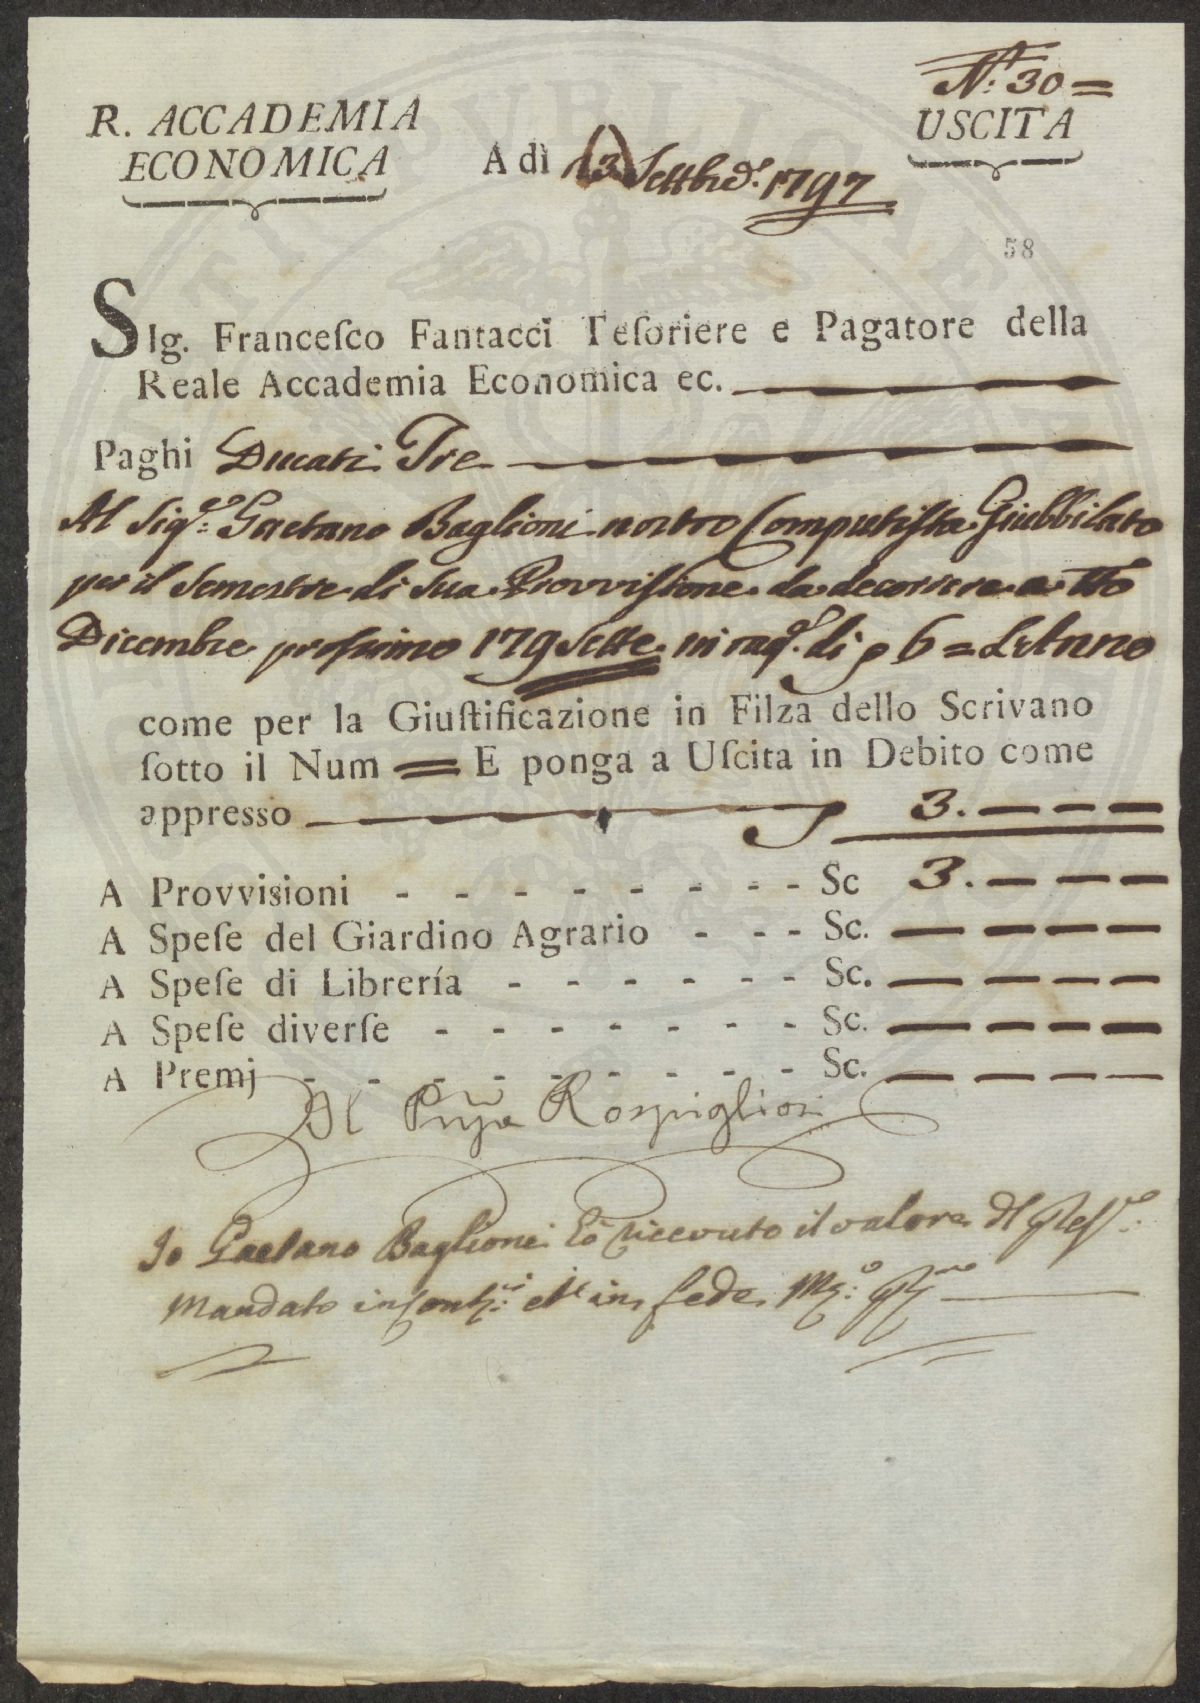 N.º 30 =
R. ACCADEMIA
ECONOMICA
USCITA
A dì 13 Settbre. 1797
58
SIg. Franceſco Fantacci Teſoriere e Pagatore della
Reale Accademia Economica ec.
Paghi Ducati Tre
Al Sigre. Gaetano Baglioni nostro Computiſta Giubbilato
per il Semestre di Sua Provviſione da decorrere a tto
Dicembre proſsimo 179Sette in rag.e di 6 = L'Anno
come per la Giuſtificazione in Filza dello Scrivano
ſotto il Num = E ponga a Uſcita in Debito come
appresso 3. — — —
A Provvisioni - - - - - - - - Sc 3. — — —
A Speſe del Giardino Agrario - - - Sc. — — — —
A Speſe di Librería - - - - - - Sc. — — — —
A Speſe diverſe - - - - - - - Sc. — — — —
A Premj - - - - - - - - - Sc. — — — —
Rospigliosi
Io Gaetano Baglioni ho ricevuto il valore del Preſ.te
Mandato in Contti. et in fede Mo. Pria